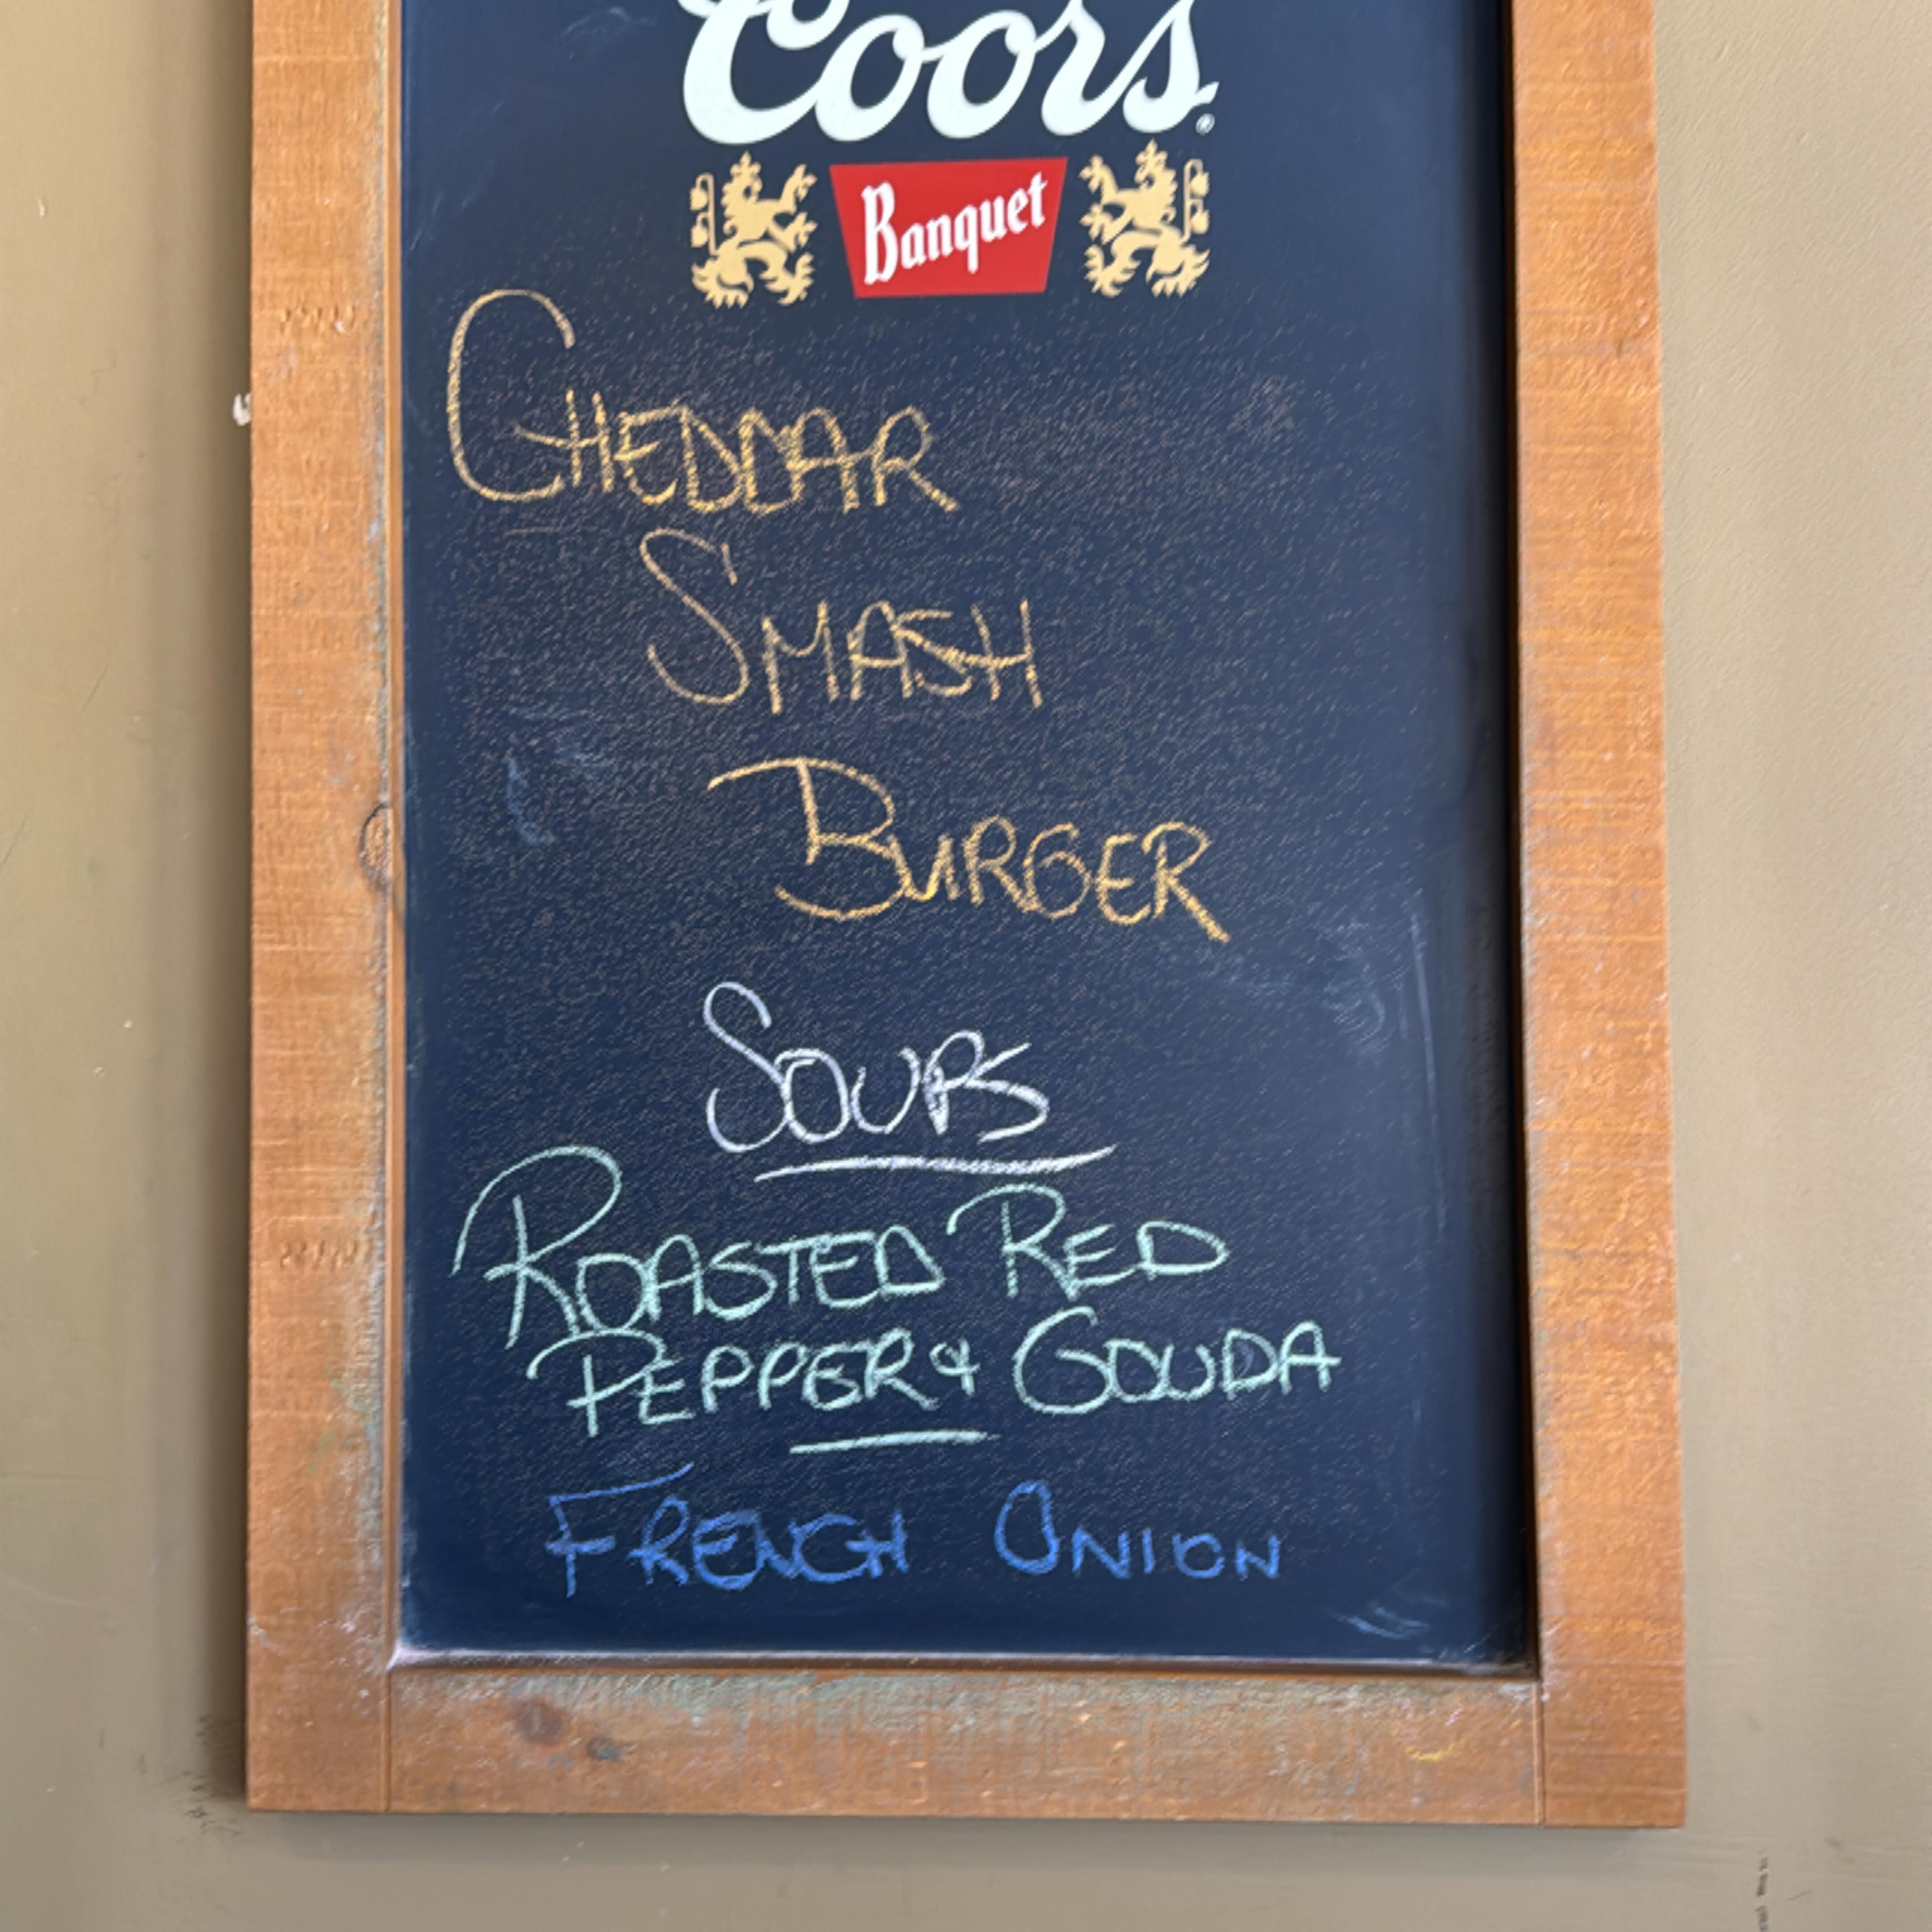 Coors®
Banquet
CHEDDAR
SMASH
BURGER
SOUPS
ROASTED RED
PEPPER & GOUDA
FRENCH ONION